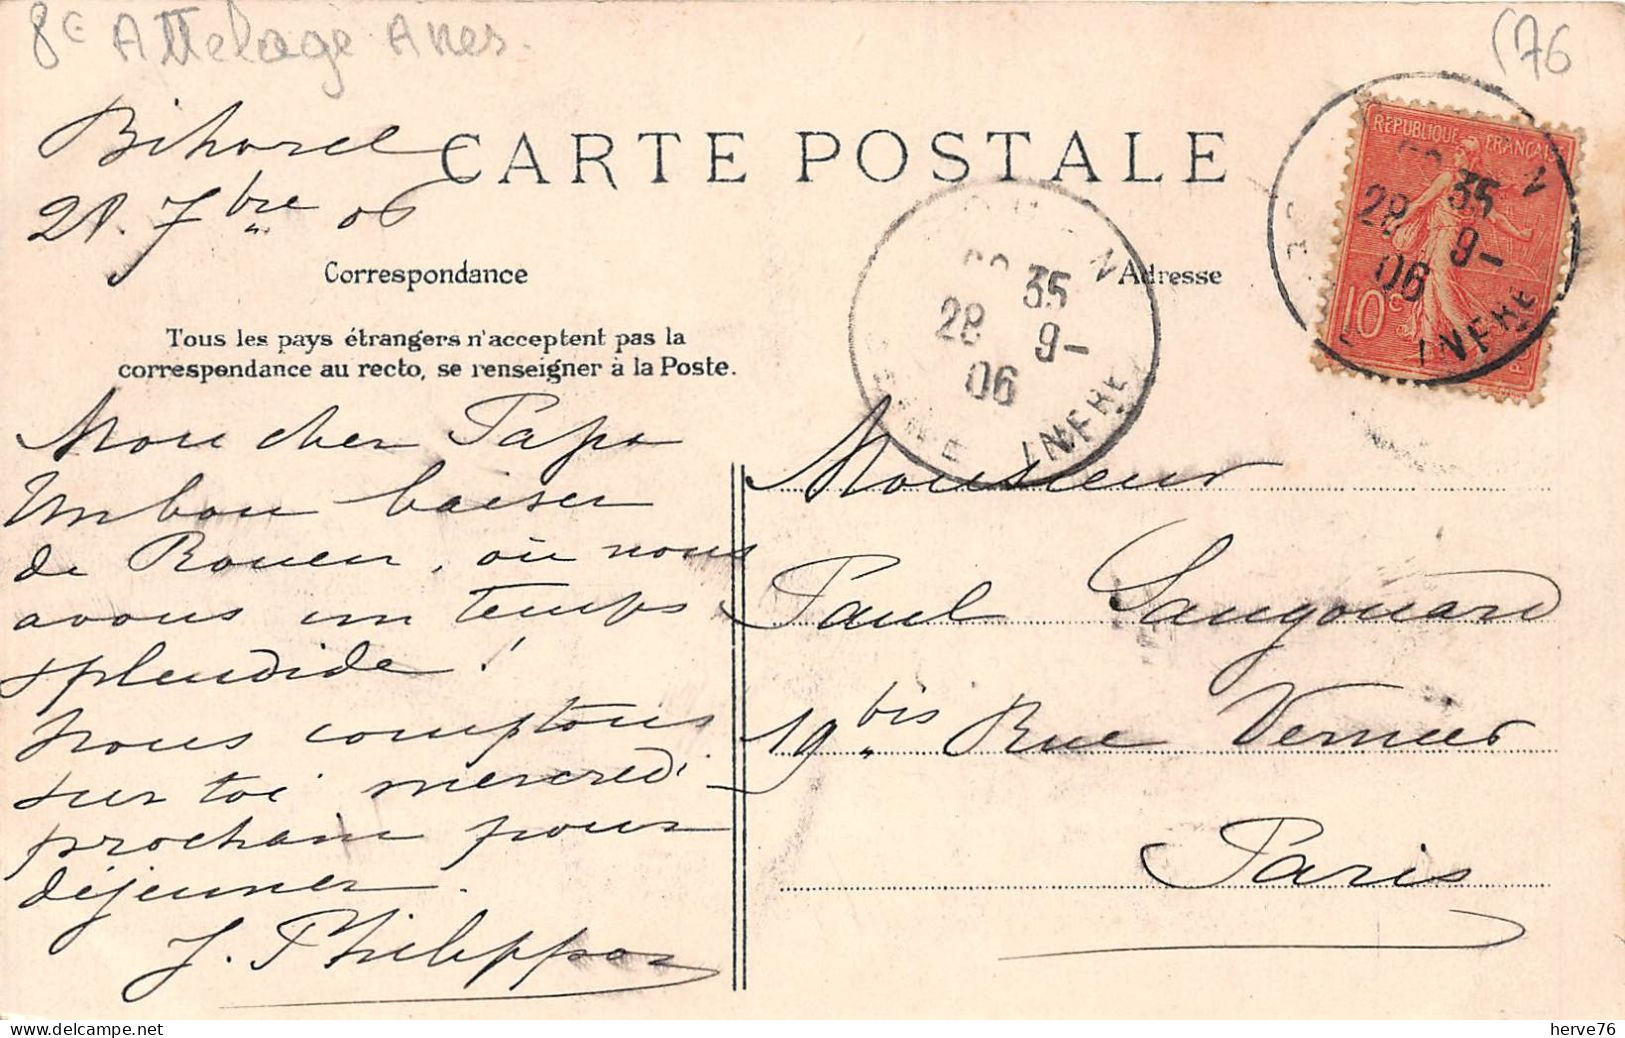 8€ Attelage Anes.
(76
Bihorel
28. 7bre 06
CARTE POSTALE
Correspondance
Adresse
Tous les pays étrangers n'acceptent pas la
correspondance au recto, se renseigner à la Poste.
REPUBLIQUE FRANCAISE
10c
35
28 9-
06
INFRE
35
28 9-
06
INFRE
Mon cher Papa
Un bon baiser
de Rouen, où nous
avons un temps
splendide !
Nous comptons
sur toi mercredi
prochain pour
déjeuner.
J. Philippon
Monsieur
Paul Langouard
19 bis Rue Vernier
Paris
herve76